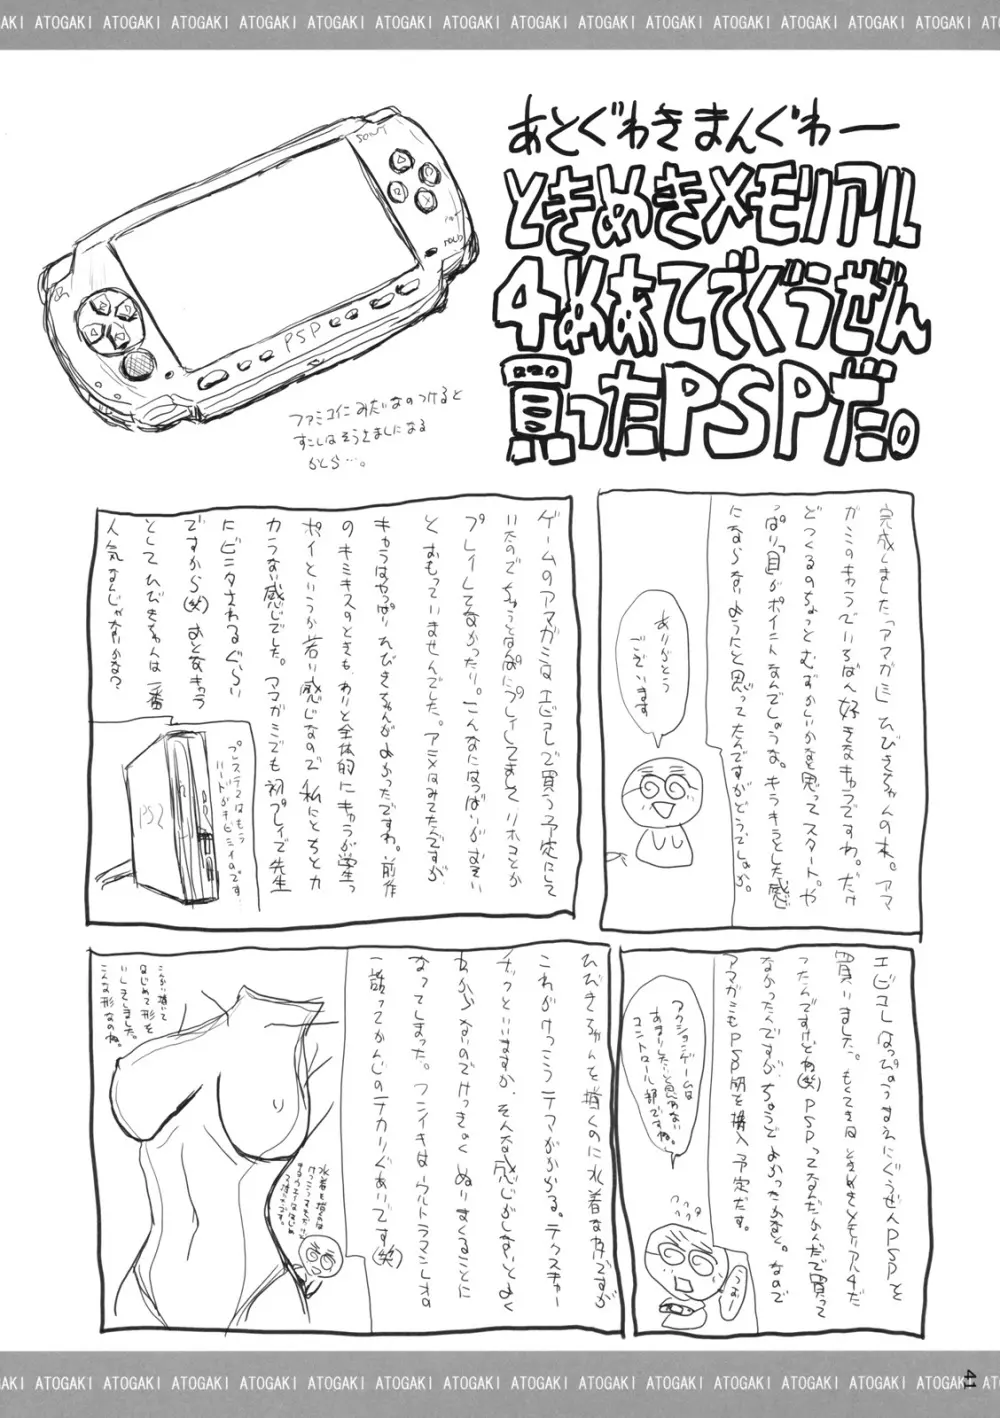 ATOGAKI ATOGAKI ATOGAKI ATOGAKI ATOGAKI ATOGAKI ATOGAKI
あとぐわきまんぐわー
ときめきメモリアル
4めあてでぐうぜん
買ったPSPだ。
SONY
PSP
ファミコンにみたいなのつけると
すこしはそうさしましになる
かしら…。
完成しました「アマガミ」ひびきちゃんの本。アマ
ガミのキャラでいちばん好きなキャラですわ。だけ
どつくるのちょっとむずかしいかなと思ってスタート。や
っぱり「目」がポイントなんでしょうな。キラキラとした感じ
にならないようにと思ってたんですがどうでしょうか。
ありがとう
ございます
ゲームのアマガミはエビコレで買う予定にして
いたのでちょうど
プレイしてなかったり。こんなにはっぱいがおおい
とおもっていませんでした。アニメはみてたんですが
キャラはやっぱりひびきちゃんがよかったですわ。前作
のキミキスのときも、わりと全体的にキャラが学生っ
ポイというか若い感じなので私にとちとカ
カラない感じでした。アマガミでも初プレイで先生
にビンタされるぐらい
ですから(笑)おとなキャラ
としてひびきちゃんは一番
人気なんじゃないかな?
プレステ2はもう
ハードがキビシイのです
PS2
エビコレはっぴょうのまえにぐうぜんPSPを
買いました。もくてきはときめきメモリアル4だ
ったんですけどね(笑)PSPってなんだかんだで買って
なかったんですが、ちょうどよかったかなと。なので
アマガミもPSP版を購入予定だす。
アクションゲームは
あまりしたいと思わない
コントロール部ですね。
うおー
ひびきちゃんを描くのに水着なわけですが
これがけっこうテマがかかる。テクスチャー
チックといいますか、そんな感じがしないとよく
わからないのでけっきょくぬりまくることに
なってしまった。フンイキはウルトラマンレオの
一話ってかんじのテカリぐあいです(笑)
こんかい描いて
はじめて形を
いしきしました。
こんな形なのね。
水着を描くのは
41
ATOGAKI ATOGAKI ATOGAKI ATOGAKI ATOGAKI ATOGAKI ATOGAKI